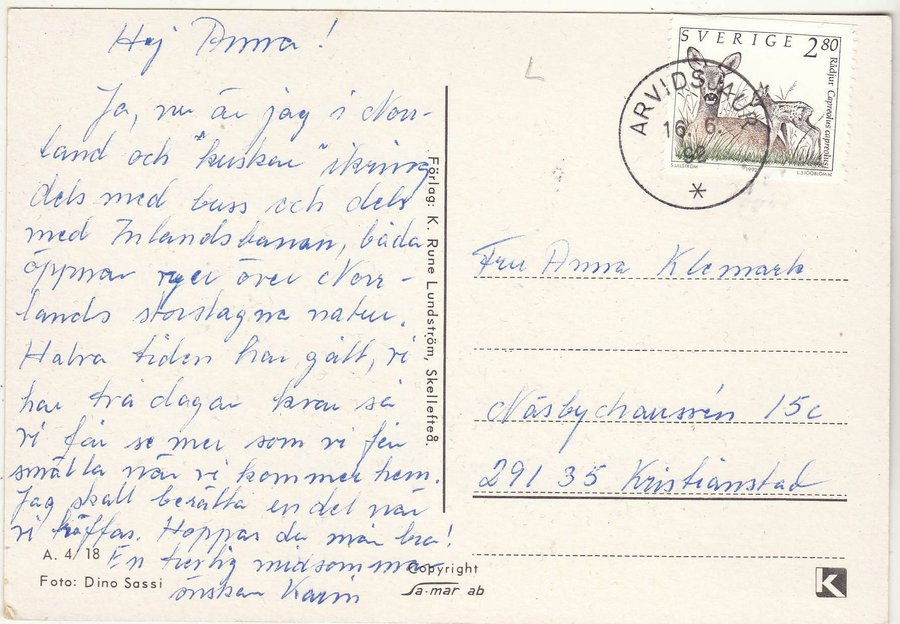 Hej Anna!
Ja, nu är jag i Norr-
land och "kuskar" ikring
dels med buss och dels
med Inlandsbanan, båda
öppnar vyer över Norr-
lands storslagna natur.
Halva tiden har gått, vi
har två dagar kvar så
vi får se mer som vi får
smälta när vi kommer hem.
Jag skall berätta en del när
vi träffas. Hoppas du mår bra!
En trevlig midsommar
önskar Karin
A. 4/18
Foto: Dino Sassi
Förlag: K. Rune Lundström, Skellefteå.
Copyright
Sa-mar ab
L
SVERIGE 280
Rådjur Capreolus capreolus
1992
L.SJÖÖBLOM SC
ARVIDSJAUR
16.6.
*
Fru Anna Klemark
Näsbychaussén 15c
291 35 Kristianstad
K